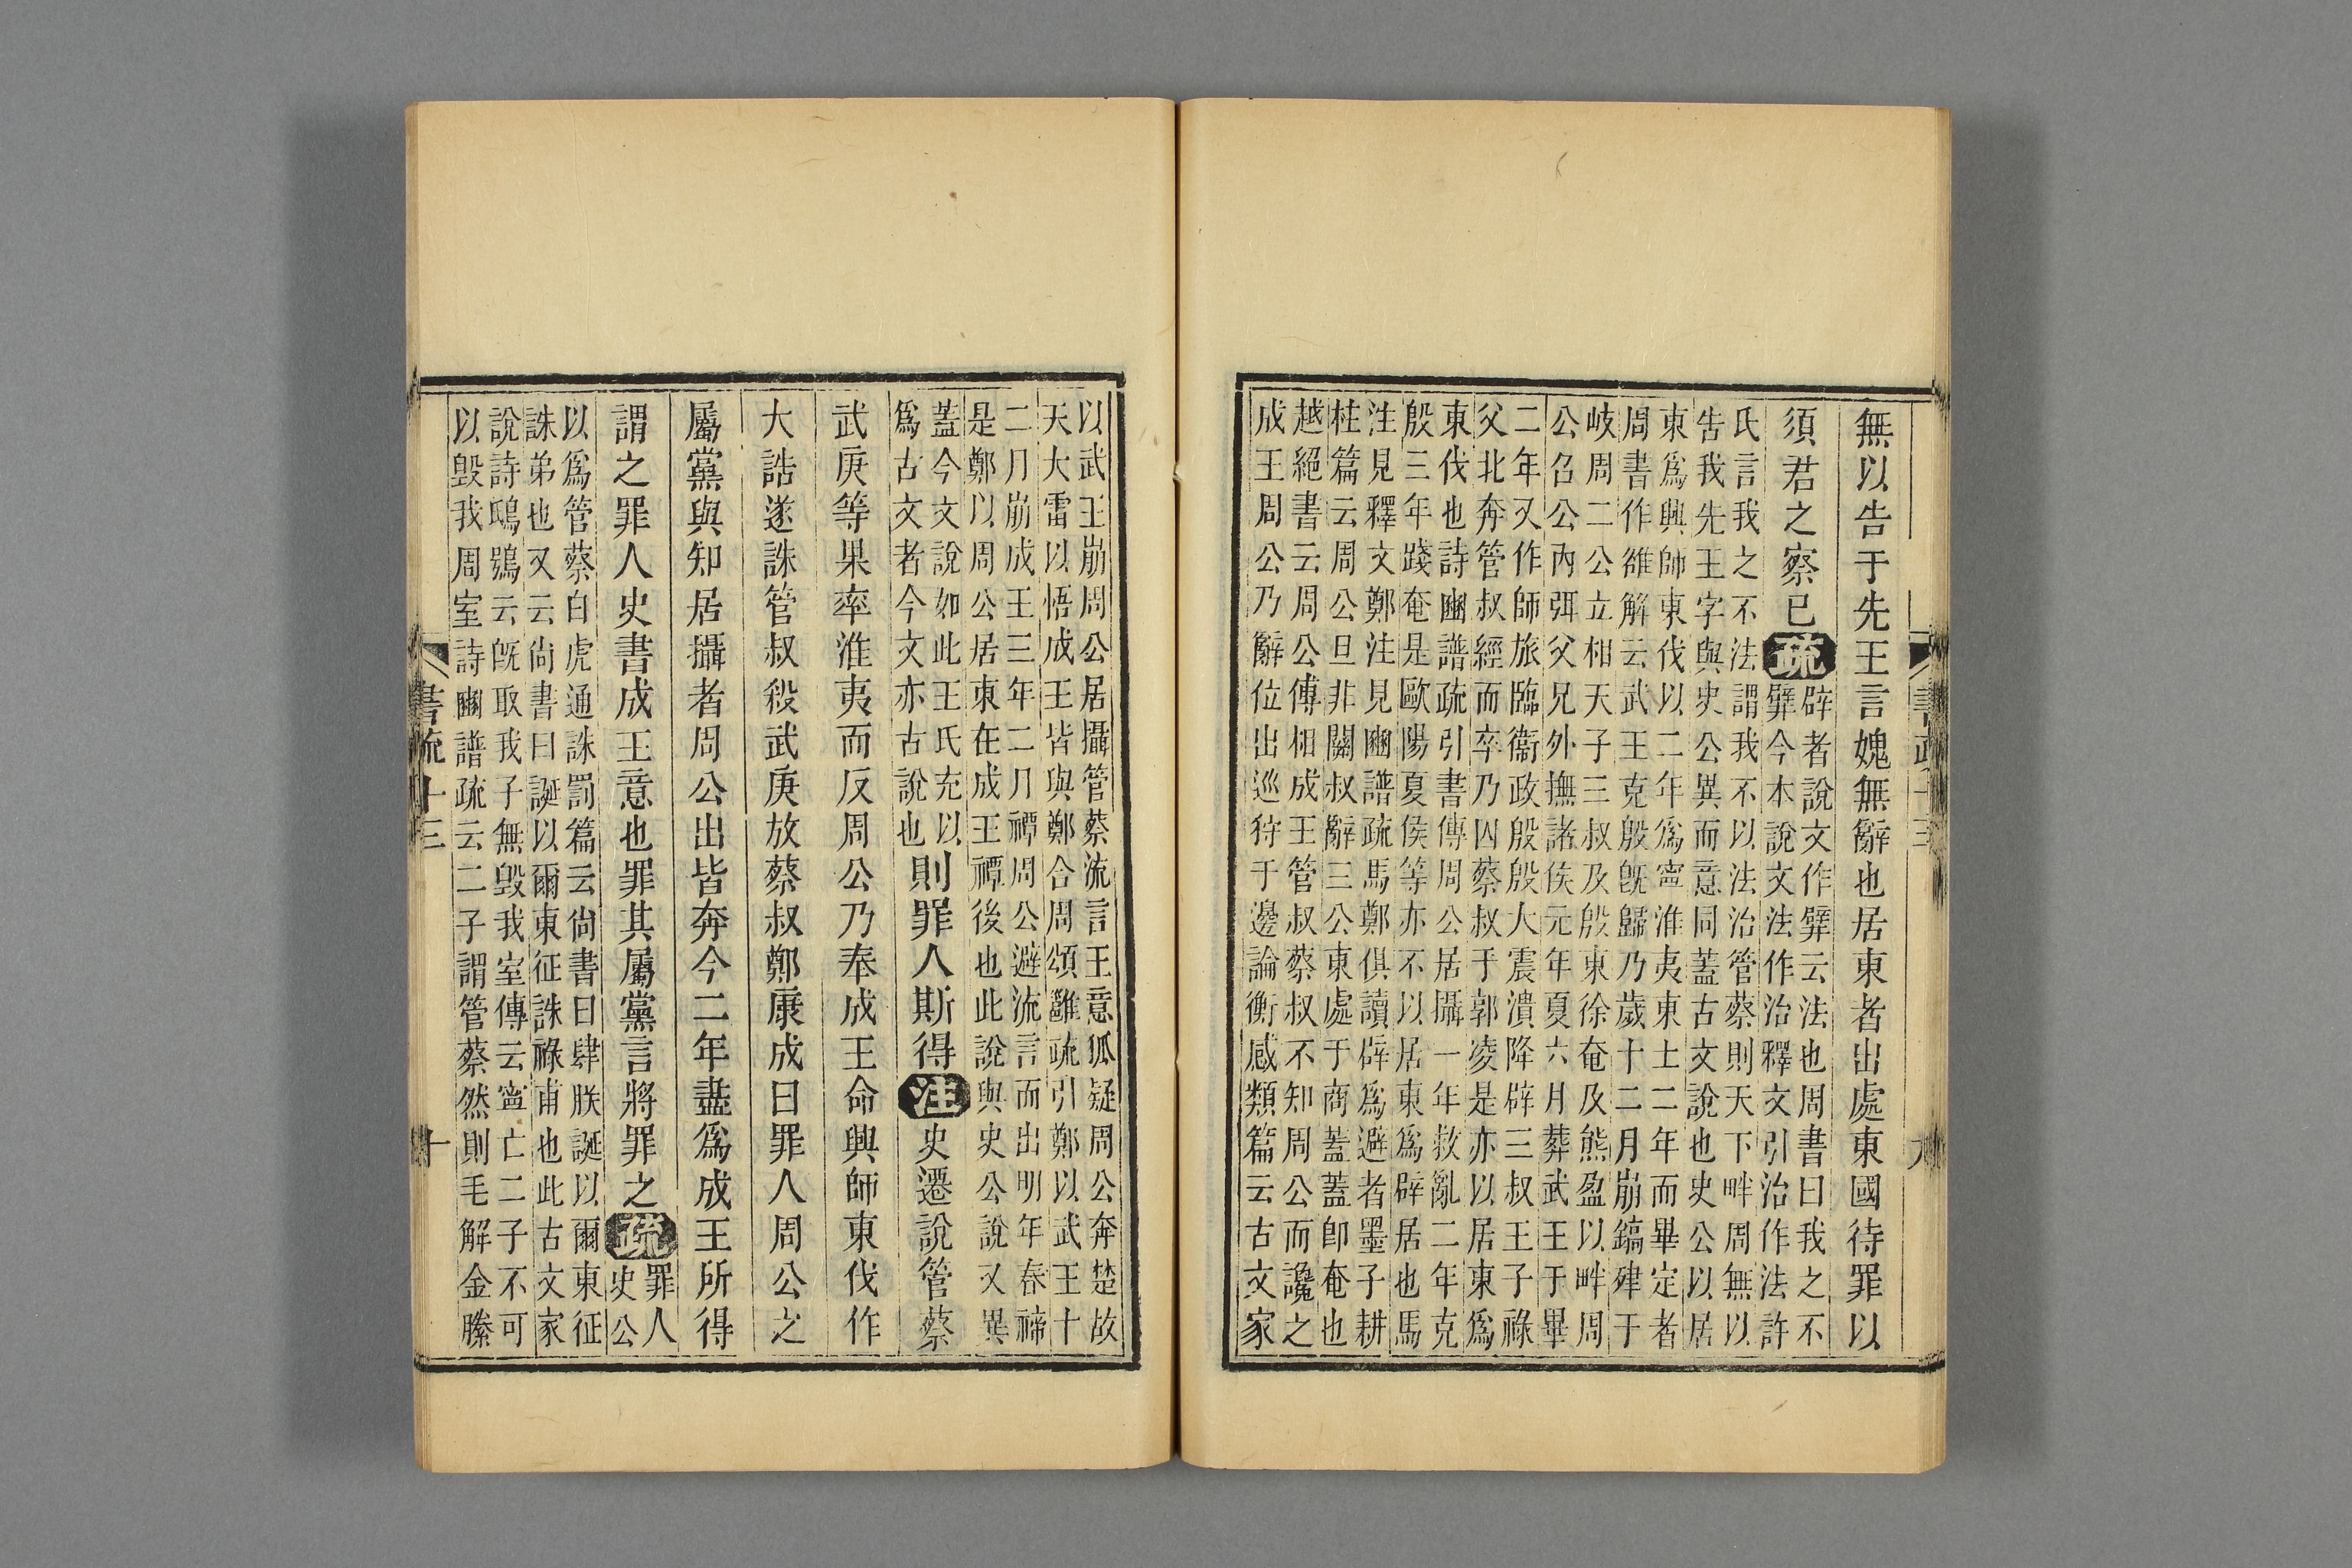 書疏十三
九
無以告于先王言媿無辭也居東者出處東國待罪以
須君之察已疏
辟者說文作𡲽云法也周書曰我之不
𡲽今本說文法作治釋文引治作法許
氏言我之不法謂我不以法治管蔡則天下畔周無以
告我先王字與史公異而意同蓋古文說也史公以居
東爲興師東伐以二年爲寧淮夷東土二年而畢定者
周書作雒解云武王克殷旣歸乃歲十二月崩鎬肂于
岐周二公立相天子三叔及殷東徐奄及熊盈以畔周
公召公內弭父兄外撫諸侯元年夏六月葬武王于畢
二年又作師旅臨衞政殷殷大震潰降辟三叔王子祿
父北奔管叔經而卒乃囚蔡叔于郭凌是亦以居東爲
東伐也詩豳譜疏引書傳周公居攝一年救亂二年克
殷三年踐奄是歐陽夏侯等亦不以居東爲辟居也馬
注見釋文鄭注見豳譜疏馬鄭俱讀辟爲避者墨子耕
柱篇云周公旦非關叔辭三公東處于商蓋蓋卽奄也
越絕書云周公傅相成王管叔蔡叔不知周公而讒之
成王周公乃辭位出巡狩于邊論衡感類篇云古文家
以武王崩周公居攝管蔡流言王意狐疑周公奔楚故
天大雷以悟成王皆與鄭合周頌雝疏引鄭以武王十
二月崩成王三年二月禫周公避流言而出明年春禘
是鄭以周公居東在成王禫後也此說與史公說又異
蓋今文說如此王氏充以
爲古文者今文亦古說也
則罪人斯得注史遷說管蔡
武庚等果率淮夷而反周公乃奉成王命興師東伐作
大誥遂誅管叔殺武庚放蔡叔鄭康成曰罪人周公之
屬黨與知居攝者周公出皆奔今二年盡爲成王所得
謂之罪人史書成王意也罪其屬黨言將罪之疏
罪人
史公
以爲管蔡白虎通誅罰篇云尙書曰肆朕誕以爾東征
誅弟也又云尙書曰誕以爾東征誅祿甫也此古文家
說詩鴟鴞云旣取我子無毀我室傳云寧亡二子不可
以毀我周室詩豳譜疏云二子謂管蔡然則毛解金縢
書疏十三
十